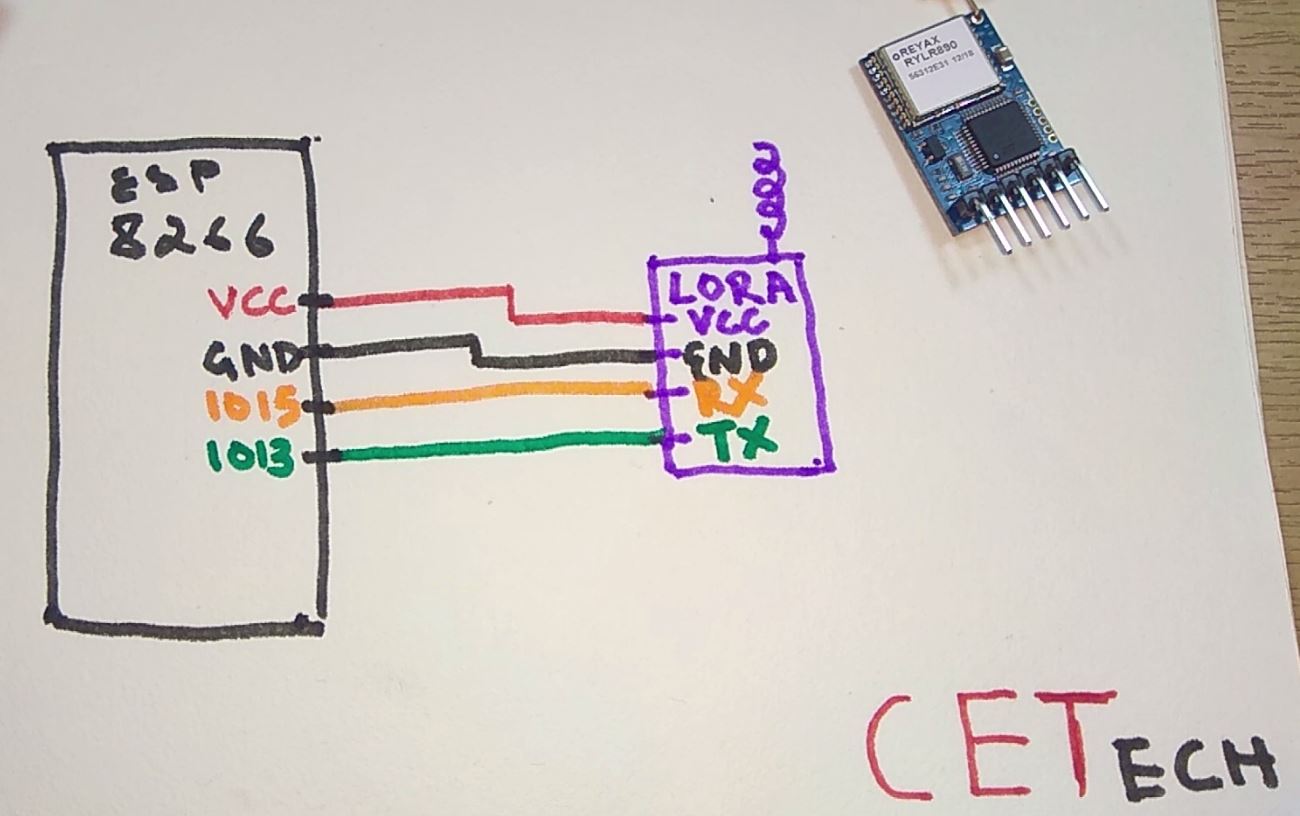 ESP
8266
VCC
GND
IO15
IO13
LORA
VCC
GND
RX
TX
REYAX
RYLR890
56312E31 12/18
CETECH